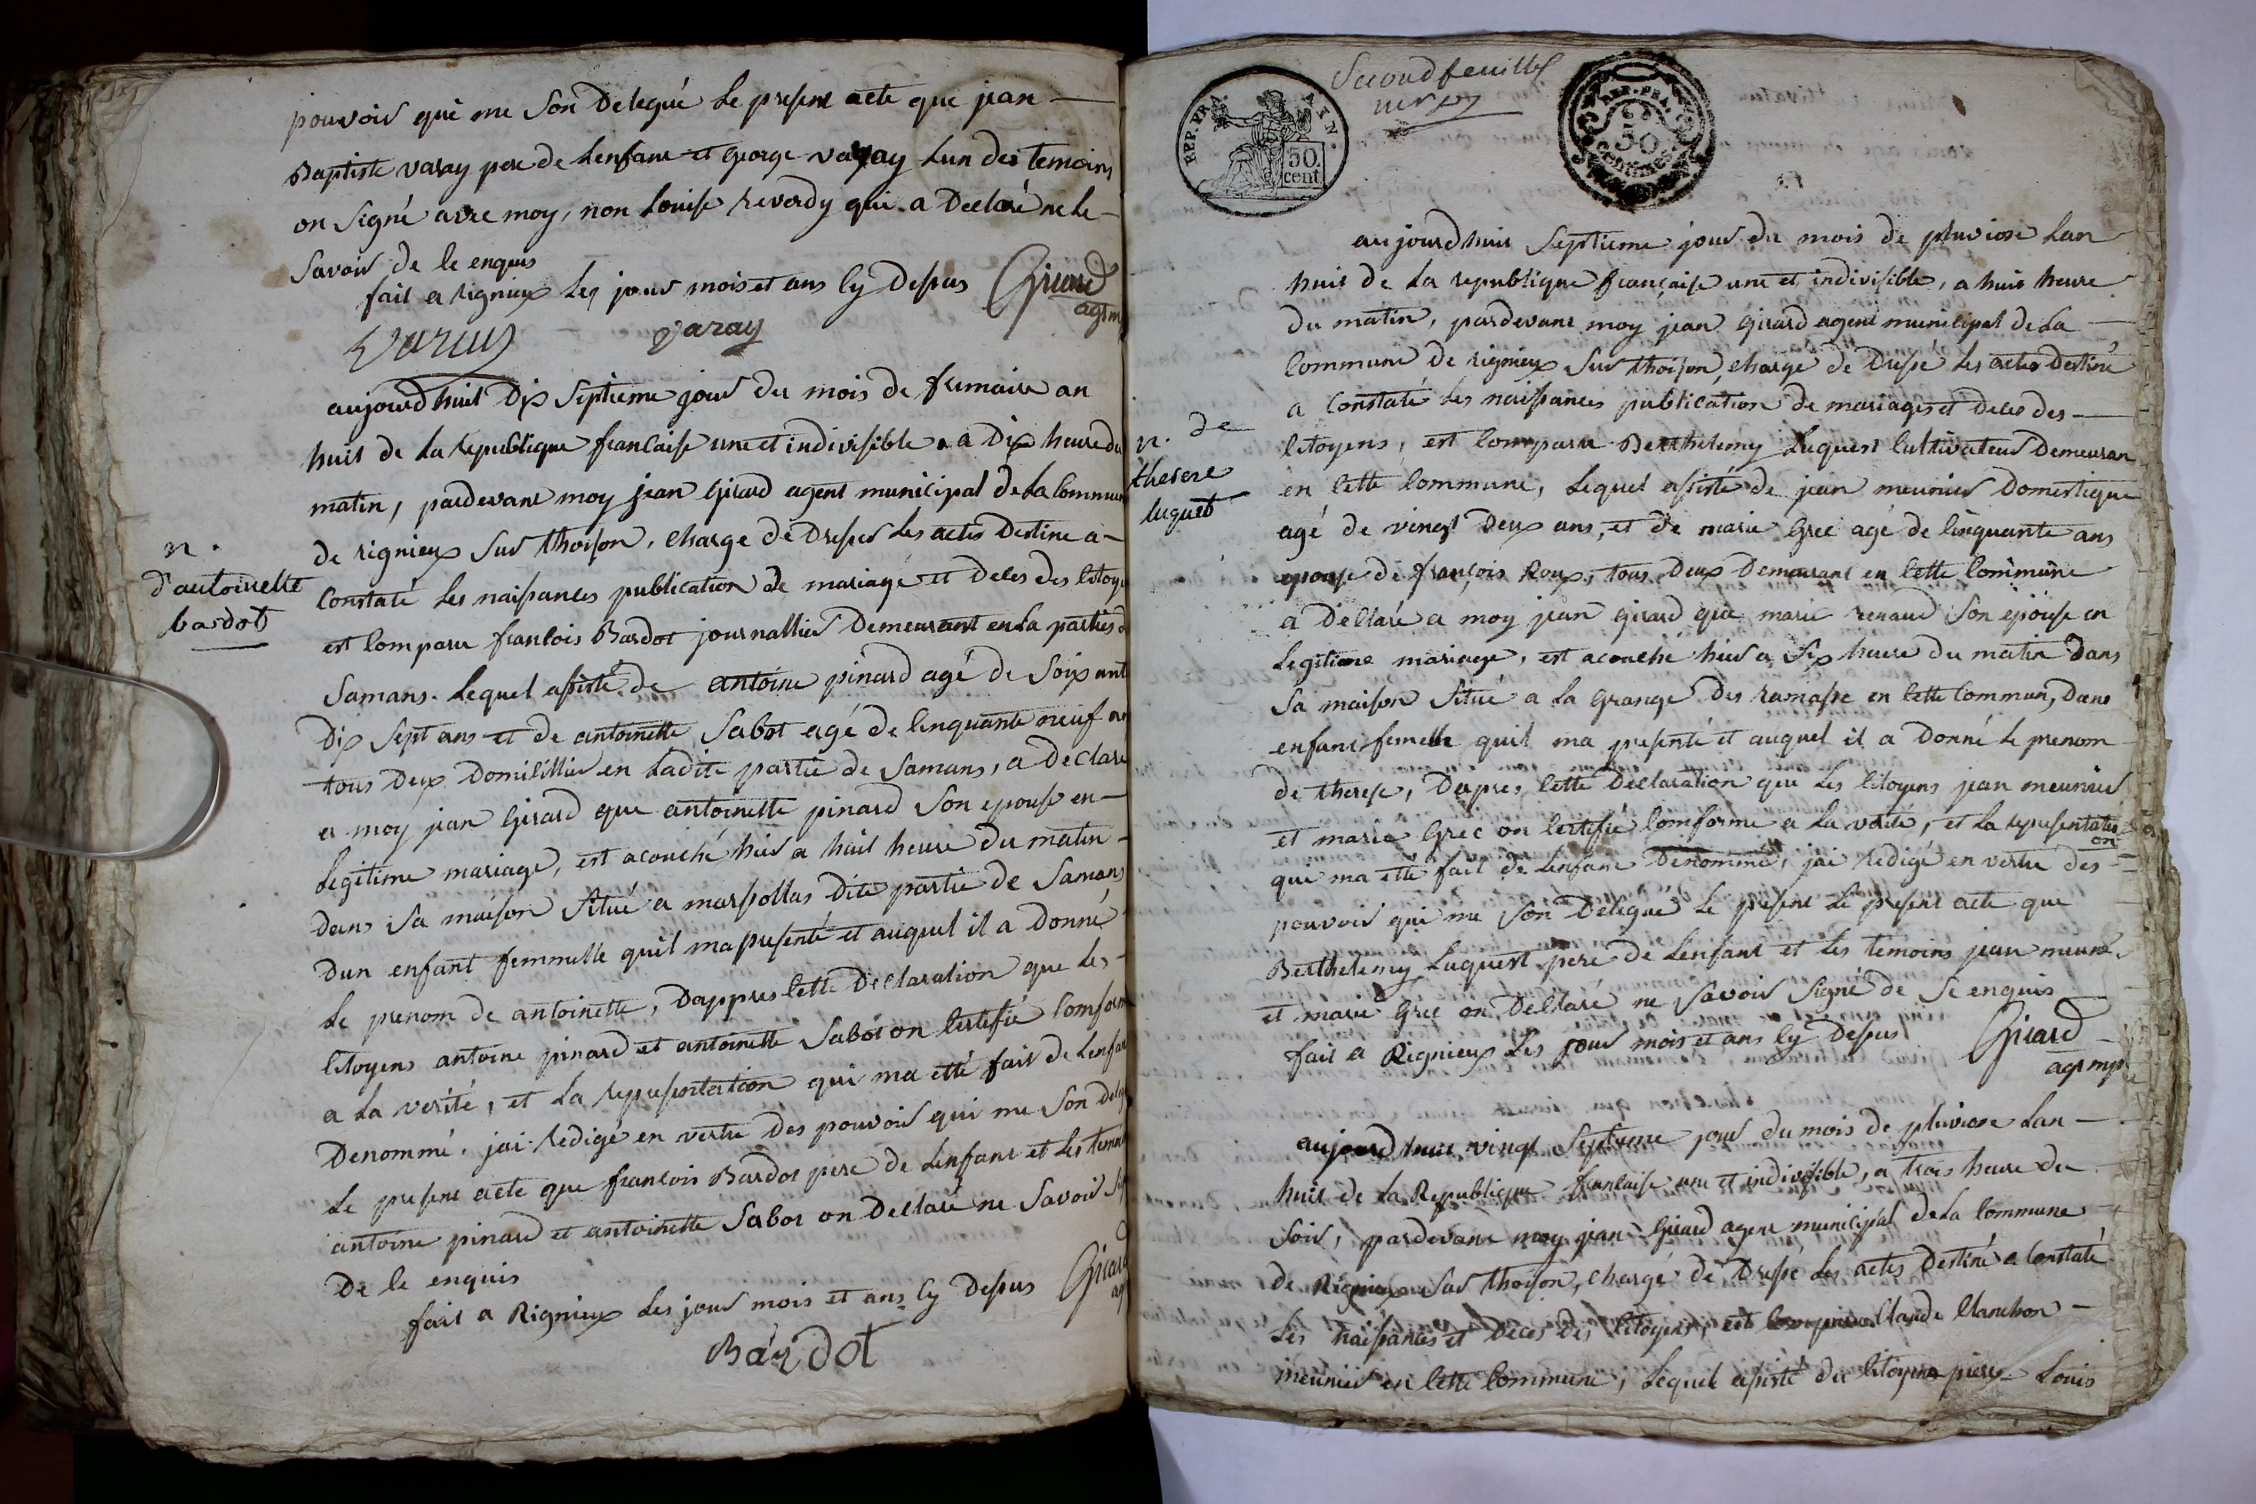 pouvoir qui me Son Delegué Le present acte que jean
Baptiste varay pere de Lenfant et George varay Lun des temoins
on Signé avec moy, non Louise Reverdy qui a Declaré ne Le
Savoir de le enquis
fait a Rignieux Les jour mois et ans Cy Dessus Girard
agt m
varay
aujourdhuit Dix Septieme jour du mois de frimaire an
huit de La republique francaise une et indivisible a Dix heure du
matin, pardevant moy jean Girard agent municipal de La Commune
de rignieux Sur thoison, Charge de Dresser Les actes Destine a
n.
d'antoinette
bardot
Constaté Les naissances publication de mariage et Deces des Citoye
est Comparu francois Bardot journallier Demeurant en La parties d
Samans. Lequel assisté de antoine pinard agé de Soixant
Dix Sept ans et de antoinette Sabot agé de Cinquante neuf an
tous Deux Domicillié en Ladite partie de Samans, a Declare
a moy jean Girard que antoinette pinard Son epouse en
Legitime mariage, est acouché hier a huit heure Du matin
dans Sa maison Situé a marsollas Dite partie de Samans
Dun enfant femmelle quil ma presenté et auquel il a Donné
Le prenom de antoinette, Dappres Cette Declaration que Les
Citoyens antoine pinard et antoinette Sabot on Certifié Comform
a La verité, et La representation qui ma etté fait de Lenfan
Denommé, jai Redigé en vertu Des pouvoir qui me Son deleg
Le present acte que francois Bardot pere de Lenfant et Les temoi
antoine pinard et antoinette Sabot on Declaré ne Savoir Sig
De le enquis
fait a Rignieux Les jour mois et ans Cy Dessus Girard
ag
Bardot
Second feuillet
REP. FRA. AIN.
50. cent.
REP. FRA.
50
CENTIMES
aujourdhuit Septieme jour du mois de pluviose Lan
huit de La republique française une et indivisible, a huit heure
Du matin, pardevant moy jean Girard agent municipal de La
Commune de rignieux Sur thoison, chargé de Dressé Les actes Destiné
a Constaté Les naissances publication de mariages et Deces des
n. de
therese
luguet
Citoyens, est Comparu Berthelemy Luquest Cultivateur Demeuran
en Cette Commune, Lequel assisté de jean meunier Domestique
agé de vingt Deux ans, et de marie Grec agé de Cinquante ans
epouse de françois Roux, tous Deux Demeurant en Cette Commune
a Déclaré a moy jean Girard que marie renaud Son epouse en
Legitime mariage, est acouché hier a Six heure Du matin Dans
Sa maison Situé a La Grange Des ramasse en Cette Commun, Dans
enfant femelle quil ma presenté et auquel il a Donné Le prenom
de therese, Dapres Cette Declaration que Les Citoyens jean meunier
et marie Grec on Certifié Comforme a La verité, et La representati
on
qui ma etté fait de Lenfant Denommé, jai redigé en vertu des
pouvoir qui me Son Delegué Le present Le present acte que
Berthelemy Luquest pere de Lenfant et Les temoins jean meuné
et marie Grec on Declaré ne Savoir Signé de Se enquis
fait a Rignieux Les jour mois et ans Cy Dessus Girard
agt mpl
aujourdhuit vingt Septieme jour du mois de pluviose Lan
huit de La Republique francaise une et indivisible, a trois heure du
Soir, pardevant moy jean Girard agent municipal de La Commune
de Rignieux Sur thoison, chargé de Dressé Les actes Destiné a Constaté
Les naissances et Deces des Citoyens, est Comparu Claude Clanchon
meunier en Cette Commune, Lequel assisté du Citoyen pierre Louis